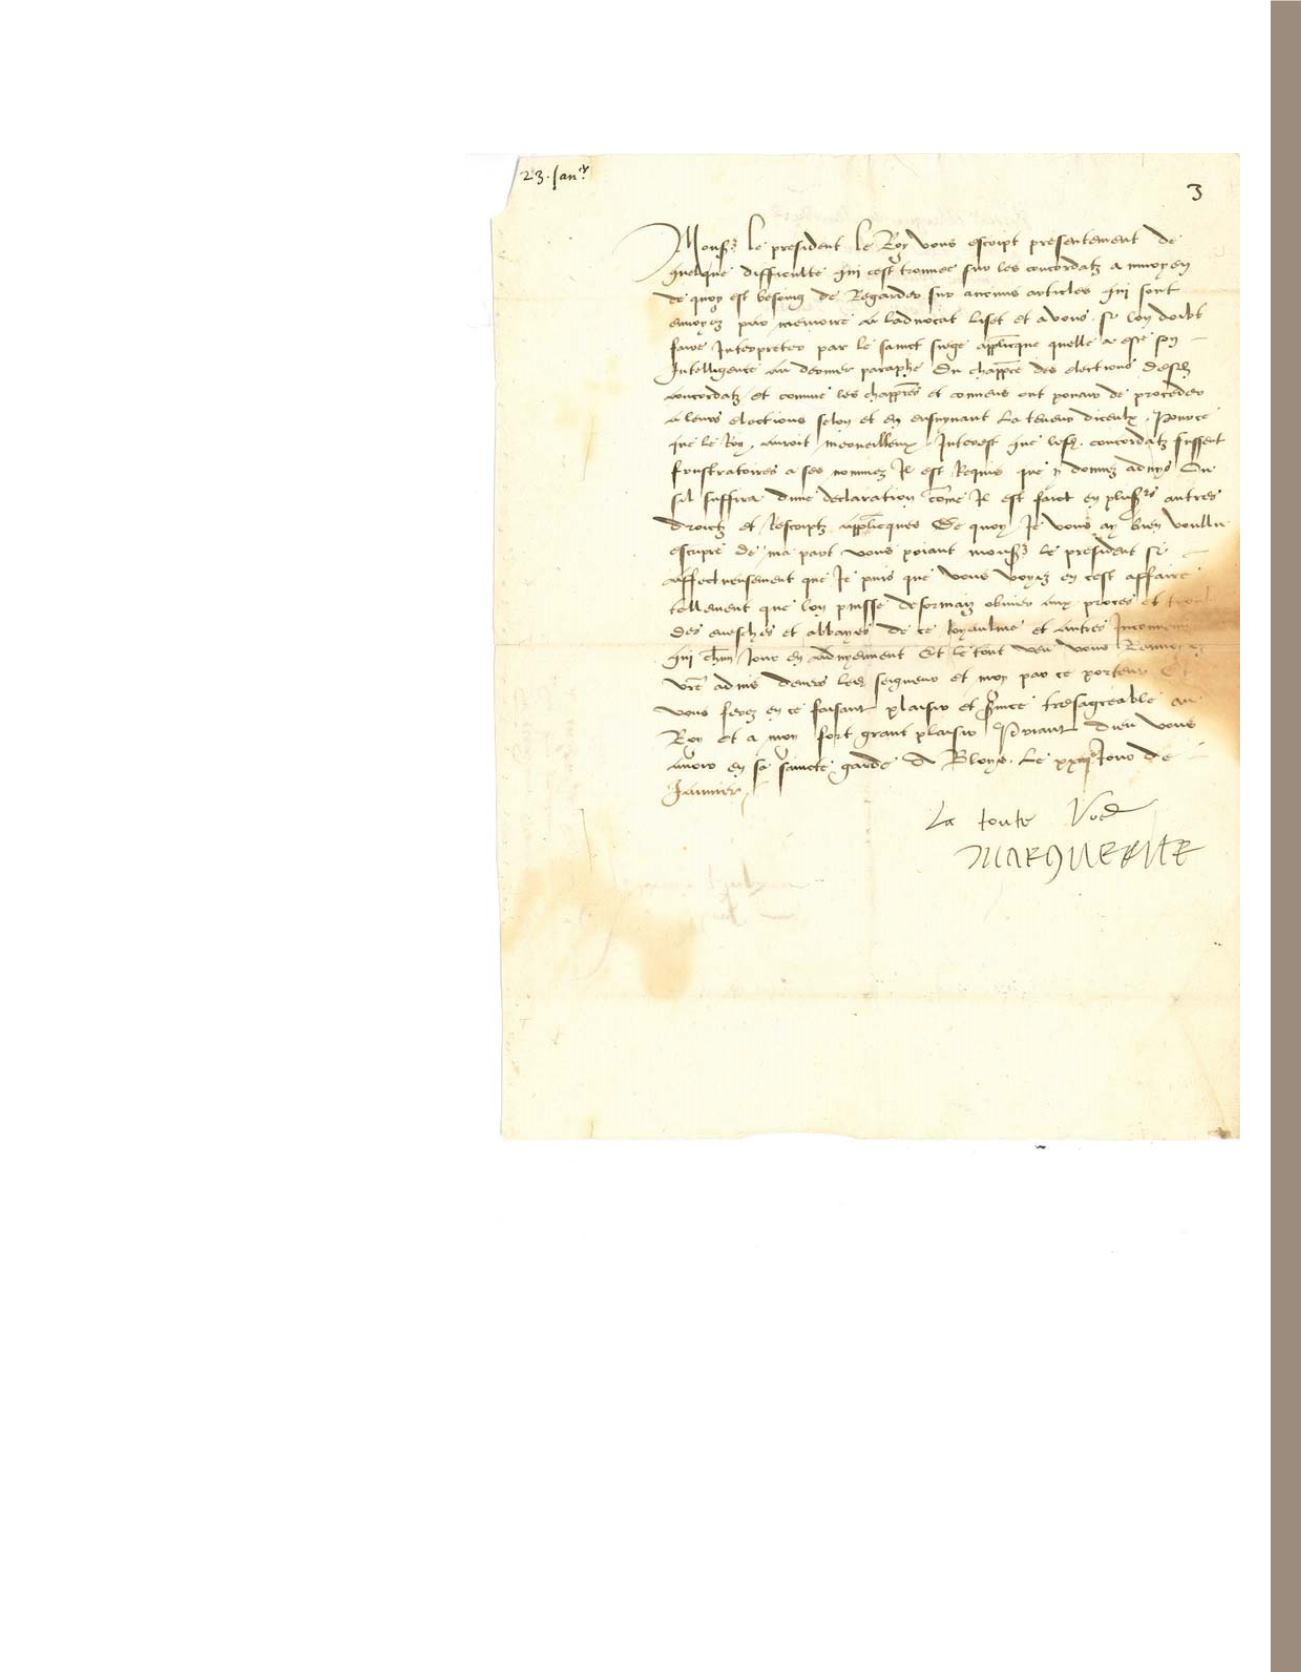 23. Janr
3
Monsr le president le Roy vous escript presentement de
quelque difficulte qui cest trouvee sur les concordatz a moyen
de quoy est besoing de Regarder sur aucuns articles qui sont
envoyez par memoire a ladvocat liset et a vous. Si lon doibt
faire Interpreter par le sainct siege applicque quelle a este son
Intelligence au dernier paraphe du chappre des elections desdz
concordatz et comme les chappres et convens ont povair de proceder
a leurs elections selon et en ensuyvant la teneur diceulx. Pource
que le Roy auroit merveilleux Interest que lesd. concordatz fussent
frustratoires a ses nommez Il est Requis que y donnez advis Ou
sil suffira dune declaration come Il est faict en plusrs autres
droictz et Rescriptz applicques De quoy Je vous ay bien voullu
escripre de ma part vous priant monsr le president si
affectueusement que Je puis que vous voyez en cest affaire
tellement que lon puisse desormaiz obvier aux proces et
des eveschés et abbayes de ce Royaulme et autres
qui chun Jour en adviennent Et le tout veu vous
vre advis devers led. seigneur et moy par ce porteur Et
vous ferez en ce faisant plaisir et svice tresagreable au
Roy et a moy fort grant plaisir Priant dieu vous
avoir en sa saincte garde A Bloys. Le xxiije Jour de
Janvier
La toute Vre
MARGUERITE